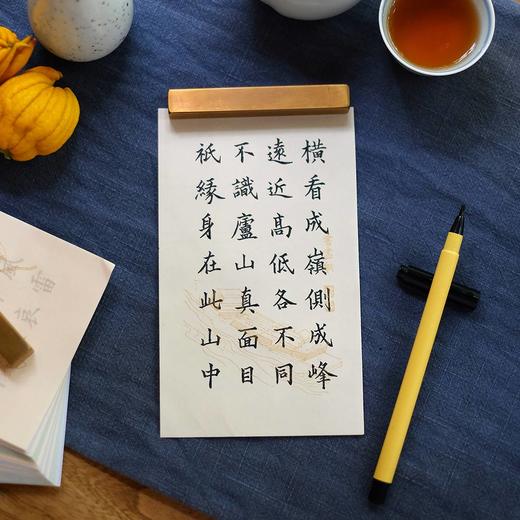 橫看成嶺側成峰
遠近高低各不同
不識廬山真面目
祇緣身在此山中
雷